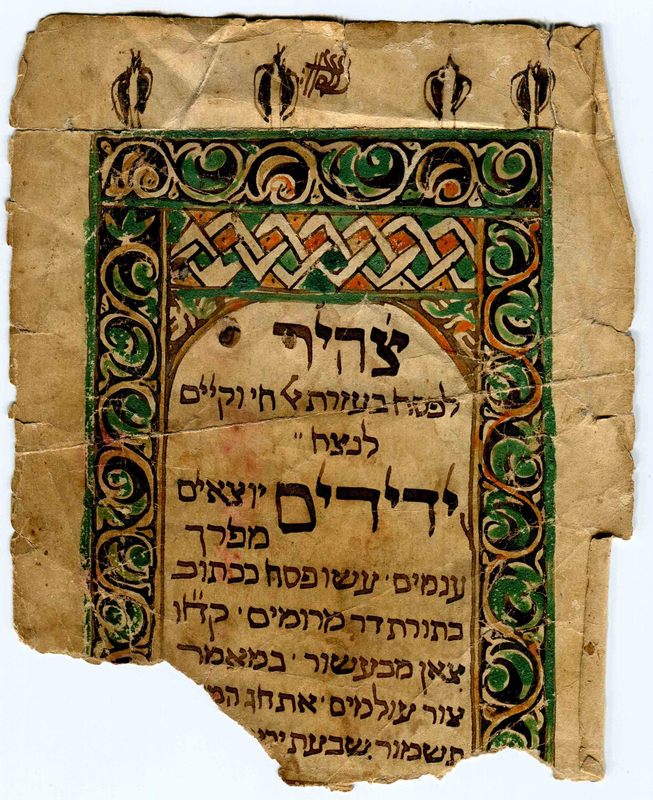 צהיר
לפסח בעזרת ﭏ חי וקיים
לנצח "
ידידים יוצאים
מפרך
ענמים · עשו פסח ככתוב
בתורת דר מרומים · קח"ו
צאן מבעשור · במאמר
צור עולמים · את חג
תשמור · שבעת